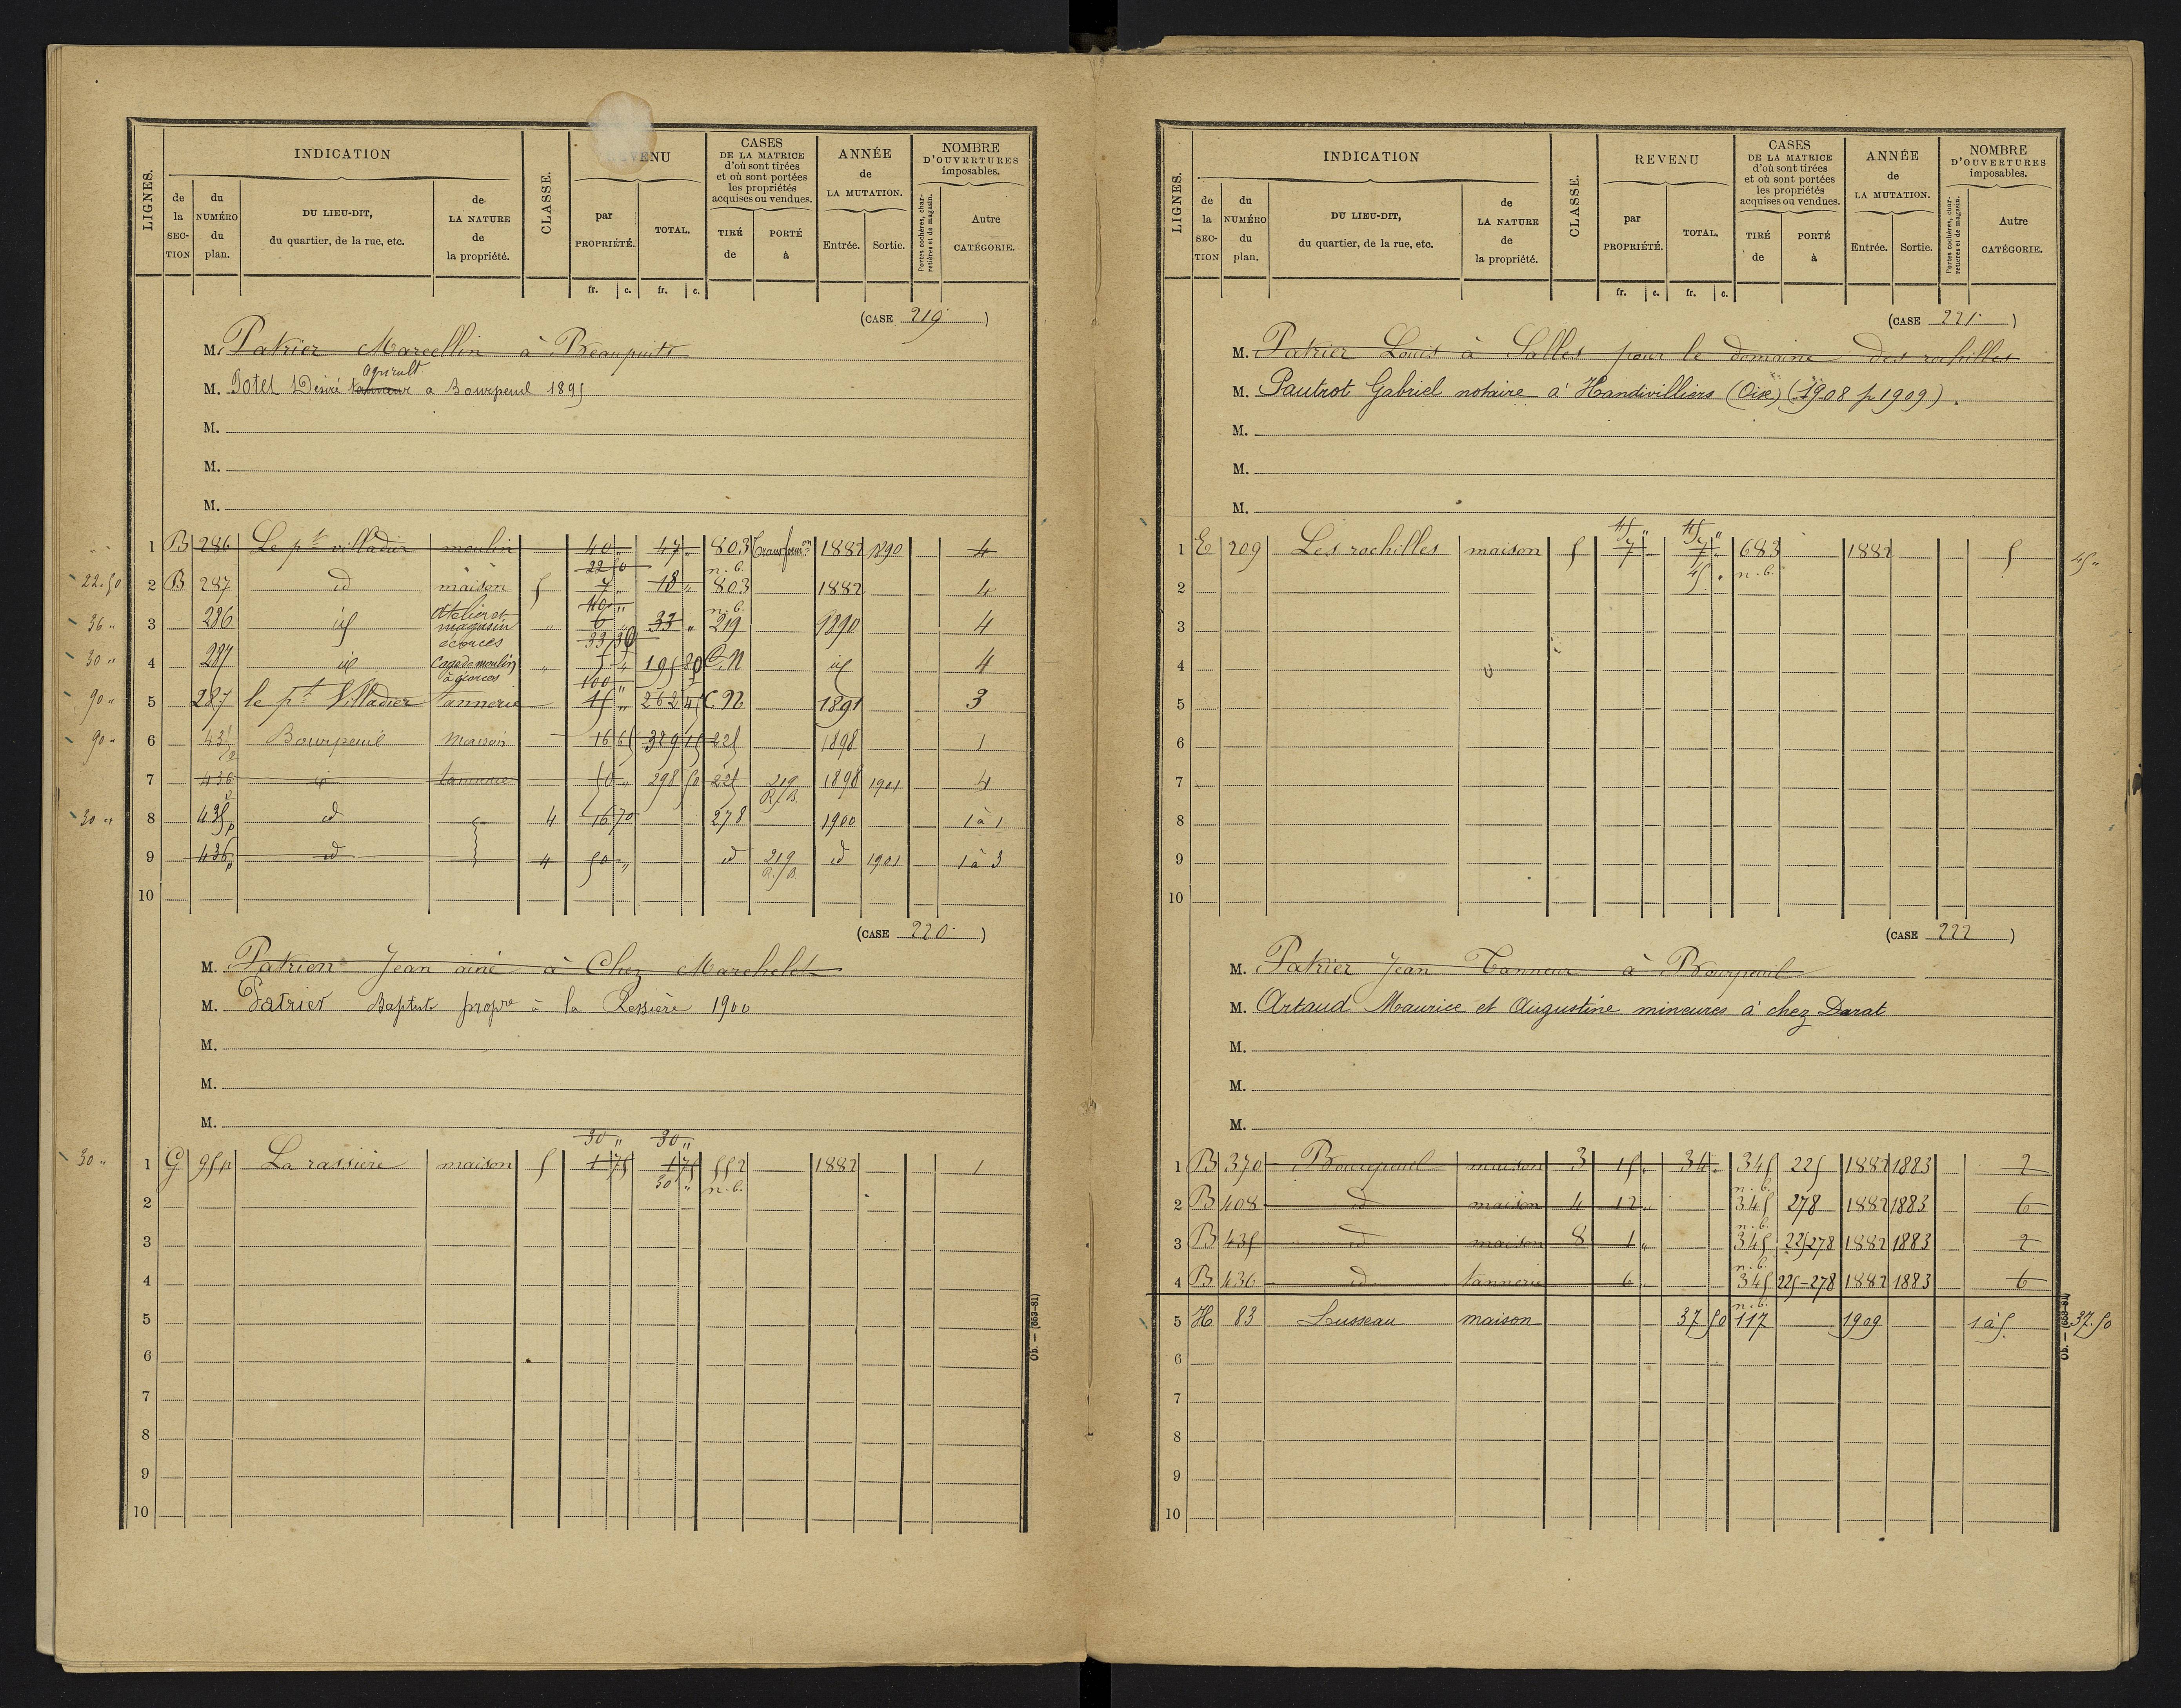 LIGNES. INDICATION CLASSE. VENU CASES DE LA MATRICE d'où sont tirées et où sont portées les propriétés acquises ou vendues. ANNÉE de LA MUTATION. NOMBRE D'OUVERTURES imposables.
de la SECTION du NUMÉRO du plan. DU LIEU-DIT, du quartier, de la rue, etc. de LA NATURE de la propriété. par PROPRIÉTÉ. TOTAL. TIRÉ de PORTÉ à Entrée. Sortie. Portes cochères, charretières et de magasin. Autre CATÉGORIE.
fr. c. fr. c.
(CASE 219)
M. Patrier Marcellin à Beaupuits
agricult
M. Potel Désiré tanneur a Bourpeuil 1895
M.
M.
M.
1 B 286 Le pt villadier moulin 40 " 47 " 803 Transformon 1882 1890 4
22.50 2 B 287 id maison 5 22 50 7 " 18 " n.b. 803 1882 4
36 " 3 286 id Atelier et magasin écorces " 40 " 6 " 33 " n.b. 219 1890 4
30 " 4 287 id Cage de moulin à écorces " 195 80 C.N id 4
90 " 5 287 le pt Villadier tannerie 100 " 15 " 262 45 C.N. 1891 3
90 " 6 Bourpeuil maison 16 65 329 15 225 1898 1
7 436 id tannerie 50 " 298 50 225 219 1898 1901 4
30 " 8 435p id 4 16 70 278 1900 1 à 1
9 436p id 4 50 " id 219 id 1901 1 à 3
10
(CASE 220)
M. Patrion Jean ainé à Chez Marchelot
M. Patrier Baptiste propre à la Ressière 1900
M.
M.
M.
30 " 30 "
30 " 1 G 95p La rassière maison 5 1 75 1 75 552 1882 1
30 " n.b.
2
3
4
5
6
7
8
9
10
Ob. — (653-81)
LIGNES. INDICATION CLASSE. REVENU CASES DE LA MATRICE d'où sont tirées et où sont portées les propriétés acquises ou vendues. ANNÉE de LA MUTATION. NOMBRE D'OUVERTURES imposables.
de la SECTION du NUMÉRO du plan. DU LIEU-DIT, du quartier, de la rue, etc. de LA NATURE de la propriété. par PROPRIÉTÉ. TOTAL. TIRÉ de PORTÉ à Entrée. Sortie. Portes cochères, charretières et de magasin. Autre CATÉGORIE.
fr. c. fr. c.
(CASE 221)
M. Patrier Louis à Salles pour le domaine des rochilles
M. Pautrot Gabriel notaire à Handivilliers (Oise) (1908 p 1909).
M.
M.
M.
45 " 45 "
1 E 209 Les rochilles maison 5 7 " 7 " 683 1882 5 45 "
2 45 " n.b.
3
4
5
6
7
8
9
10
(CASE 222)
M. Patrier Jean Tanneur à Bourpeuil
M. Artaud Maurice et Augustine mineures à chez Darat
M.
M.
M.
1 B 370 Bourpeuil maison 3 15 " 34 " 345 225 1882 1883 2
2 B 408 id maison 4 12 " n.b. 345 278 1882 1883 6
3 B 435 id maison 8 1 " n.b. 345 225 278 1882 1883 2
4 B 436 id tannerie 6 " n.b. 345 225-278 1882 1883 6
5 H 83 Lusseau maison 37 50 n.b. 117 1909 1 à 5 37.50
6
7
8
9
10
Ob. — (653-81)